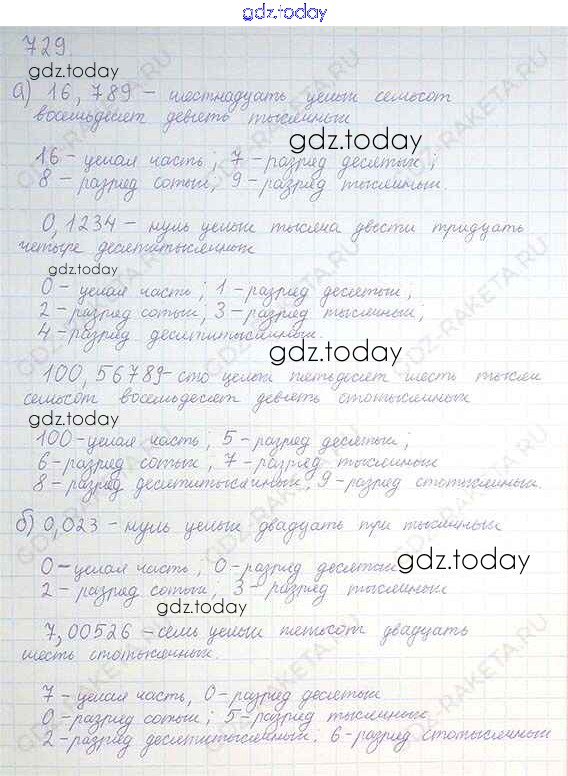 gdz.today
729.
gdz.today
а) 16,789 – шестнадцать целых семьсот
восемьдесят девять тысячных
gdz.today
16 – целая часть; 7 – разряд десятых;
8 – разряд сотых; 9 – разряд тысячных.
0,1234 – нуль целых тысяча двести тридцать
четыре десятитысячных
gdz.today
0 – целая часть; 1 – разряд десятых;
2 – разряд сотых, 3 – разряд тысячных;
4 – разряд десятитысячных.
gdz.today
100,56789 – сто целых пятьдесят шесть тысяч
семьсот восемьдесят девять стотысячных
gdz.today
100 – целая часть; 5 – разряд десятых;
6 – разряд сотых, 7 – разряд тысячных
8 – разряд десятитысячных, 9 – разряд стотысячных.
б) 0,023 – нуль целых двадцать три тысячных
0 – целая часть, 0 – разряд десятых
gdz.today
2 – разряд сотых; 3 – разряд тысячных
gdz.today
7,00526 – семь целых пятьсот двадцать
шесть стотысячных.
7 – целая часть, 0 – разряд десятых
0 – разряд сотых; 5 – разряд тысячных
2 – разряд десятитысячных. 6 – разряд стотысячных
GDZ-RAKETA.RU